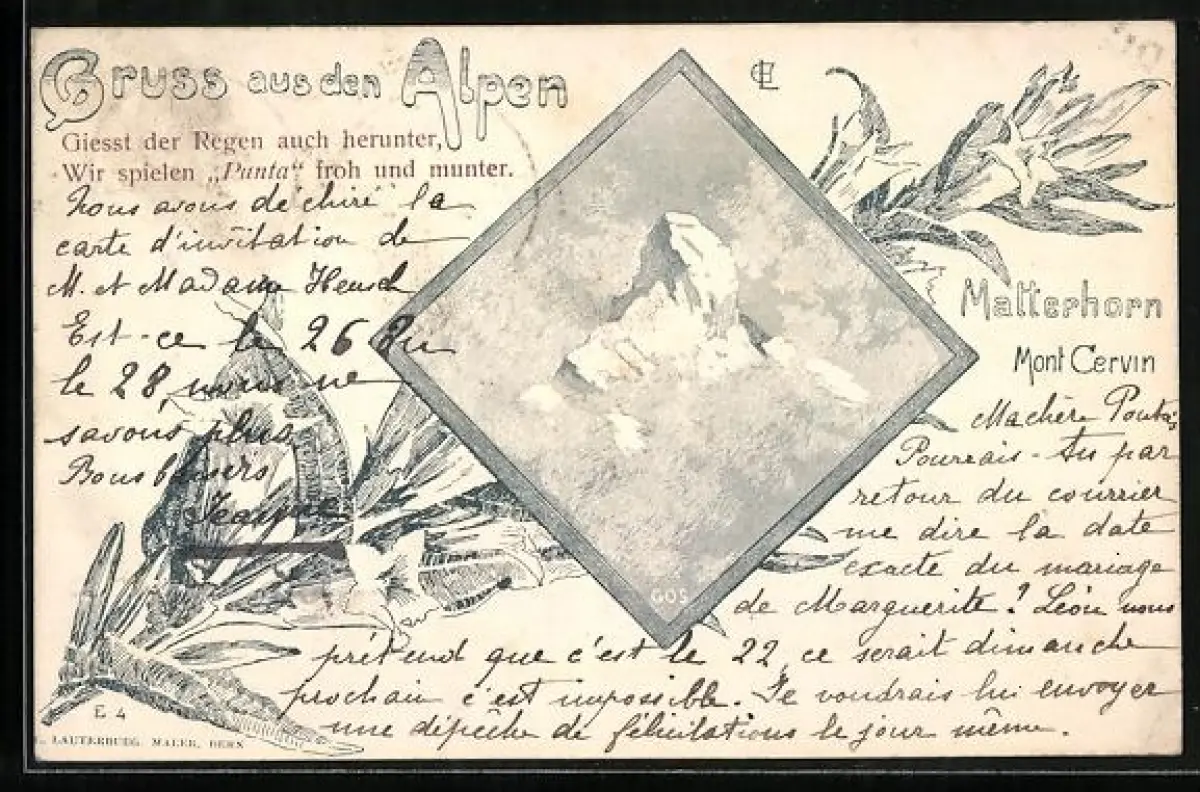 Gruss aus den Alpen
Giesst der Regen auch herunter,
Wir spielen „Punta“ froh und munter.
CEL
Matterhorn
Mont Cervin
Ma chère
Pourrais-tu par
retour du courrier
me dire la date
exacte du mariage
de Marguerite? Léon nous
prétend que c'est le 22, ce serait dimanche
prochain c'est impossible. Je voudrais lui envoyer
une dépêche de félicitations le jour même.
Nous avons déchiré la
carte d'invitation de
M. et Madame
Est-ce le 26 ou
le 28, nous ne
savons plus.
Bons baisers
Jeanne
GOS
E 4
LAUTERBURG, MALER, BERN